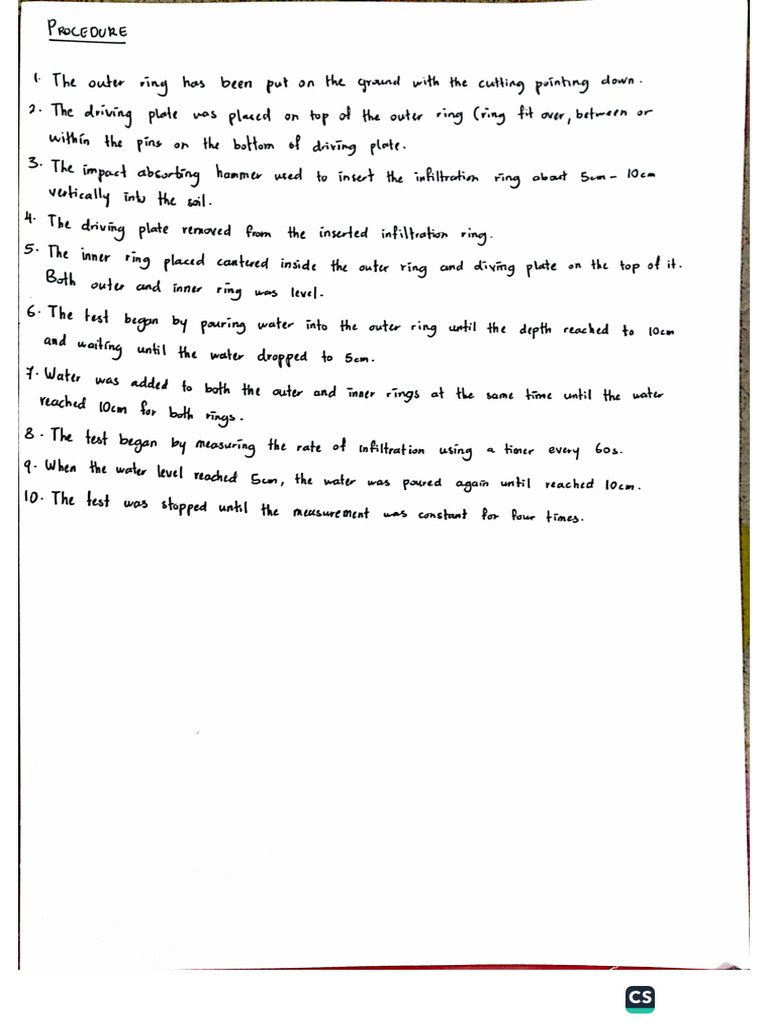 PROCEDURE
1. The outer ring has been put on the ground with the cutting pointing down.
2. The driving plate was placed on top of the outer ring (ring fit over, between or
within the pins on the bottom of driving plate.
3. The impact absorbing hammer used to insert the infiltration ring about 5cm - 10cm
vertically into the soil.
4. The driving plate removed from the inserted infiltration ring.
5. The inner ring placed cantered inside the outer ring and diving plate on the top of it.
Both outer and inner ring was level.
6. The test began by pouring water into the outer ring until the depth reached to 10cm
and waiting until the water dropped to 5cm.
7. Water was added to both the outer and inner rings at the same time until the water
reached 10cm for both rings.
8. The test began by measuring the rate of infiltration using a timer every 60s.
9. When the water level reached 5cm, the water was poured again until reached 10cm.
10. The test was stopped until the measurement was constant for four times.
CS